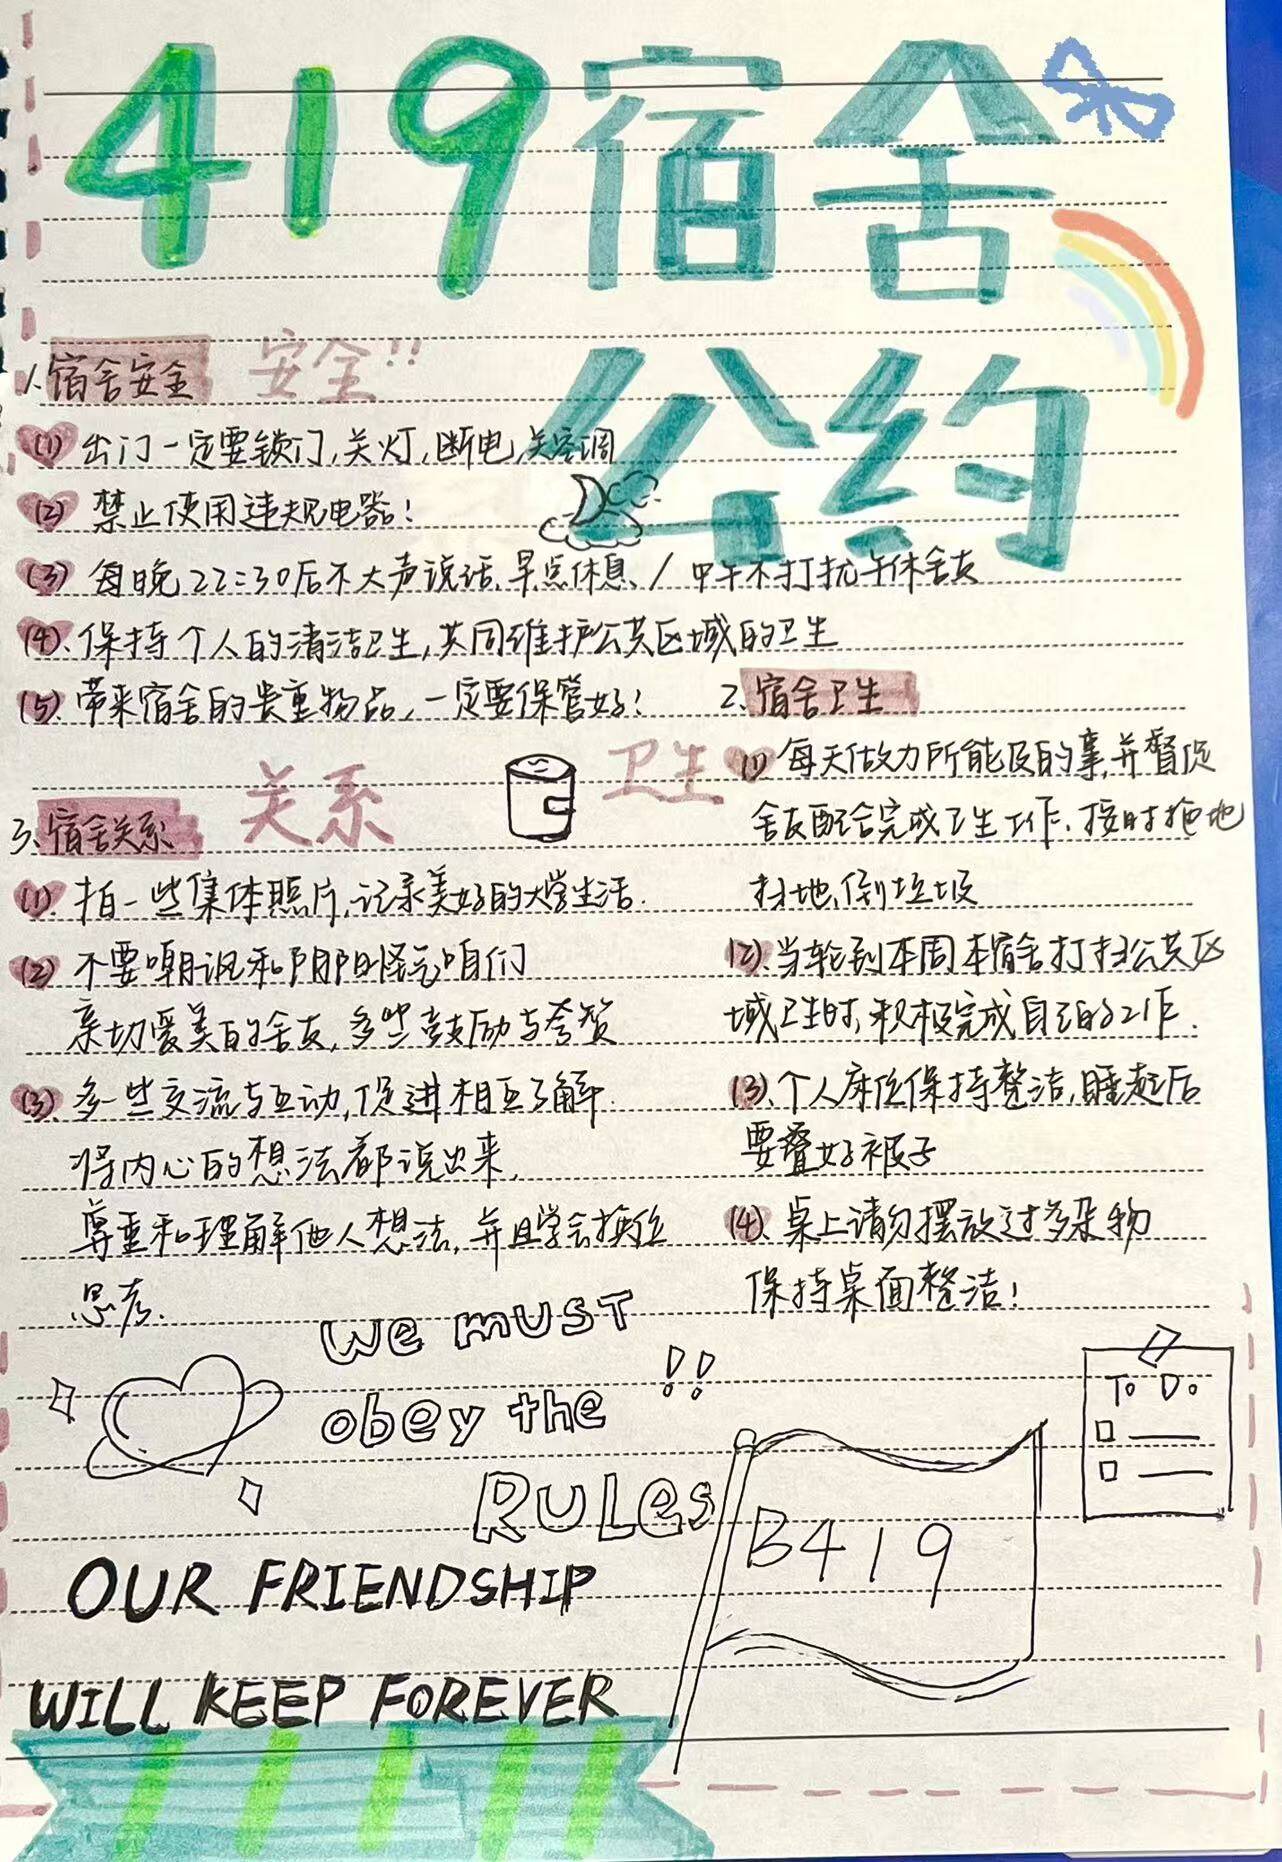 419宿舍
公约
1.宿舍安全 安全!!
(1) 出门一定要锁门,关灯,断电,关空调
(2) 禁止使用违规电器!
(3) 每晚22:30后不大声说话,早点休息 / 中午不打扰午休舍友
(4).保持个人的清洁卫生,共同维护公共区域的卫生
(5).带来宿舍的贵重物品,一定要保管好!
2.宿舍卫生
卫生
(1) 每天做力所能及的事,并督促
舍友配合完成卫生工作.按时拖地
扫地,倒垃圾
(2).当轮到本周本宿舍打扫公共区
域卫生时,积极完成自己的工作.
(3).个人床位保持整洁,睡起后
要叠好被子
(4).桌上请勿摆放过多杂物
保持桌面整洁!
3.宿舍关系 关系
(1).拍一些集体照片,记录美好的大学生活.
(2) 不要嘲讽和阴阳怪气咱们
亲切爱美的舍友,多些鼓励与夸赞
(3) 多一些交流与互动,促进相互了解.
将内心的想法都说出来,
尊重和理解他人想法,并且学会换位
思考.
We must
obey the !!
RULes
To Do
B419
OUR FRIENDSHIP
WILL KEEP FOREVER